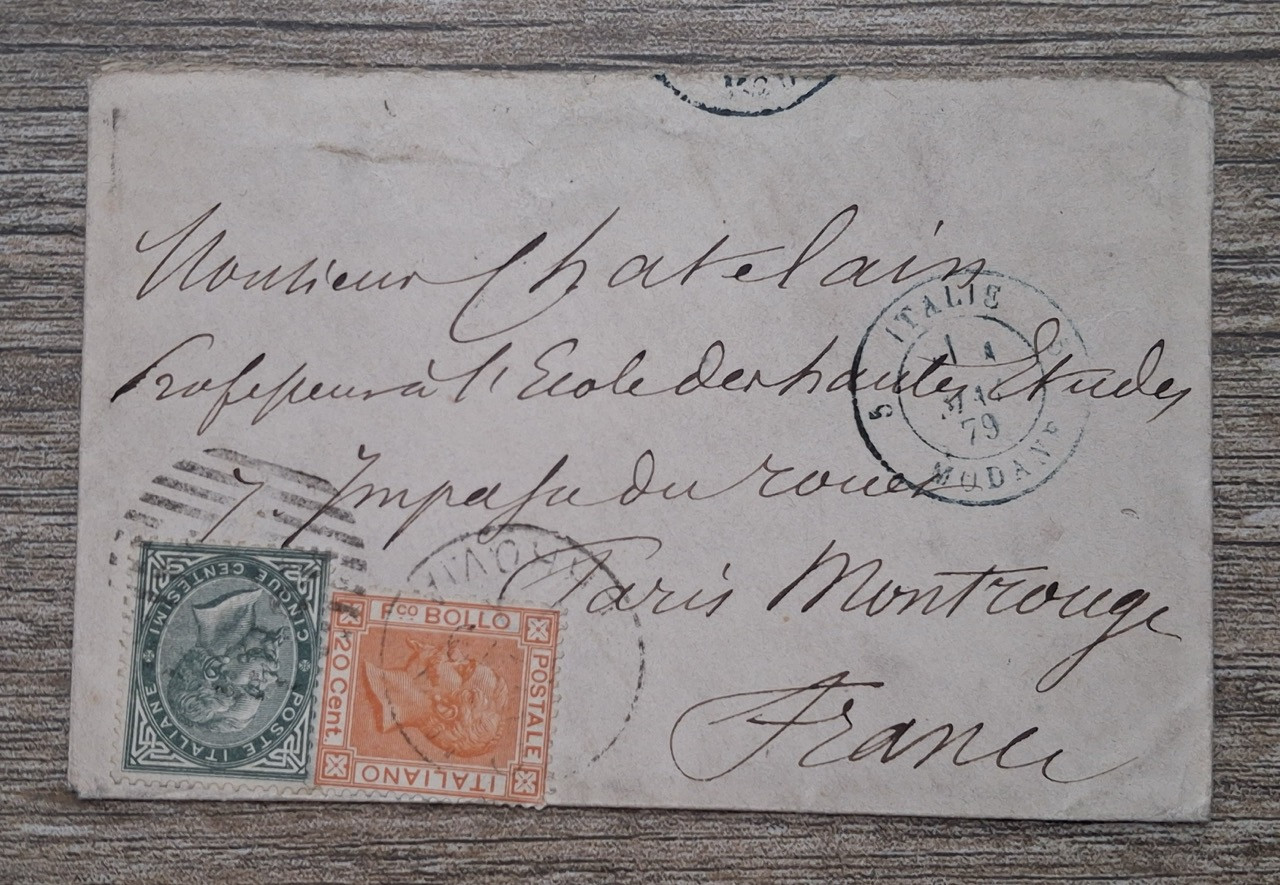 Monsieur Chatelain
Professeur à l'Ecole des hautes Etudes
7. Impasse du rouet
Paris Montrouge
France
5 ITALIE
MODANE
79
POSTE ITALIANE
CINQUE CENTESIMI
Fco BOLLO
POSTALE
ITALIANO
20 Cent